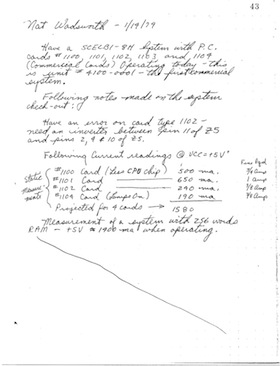 43
Nat Wadsworth - 1/19/79
Have a SCELBI-8H system with P.C.
cards #1100, 1101, 1102, 1103, and 1104
(Commercial Cards) Operating today - this
is unit #4100-0001 - the first commercial
system.
Following notes made on the system
check-out:
Have an error on card type 1102 -
need an inverter between pin 11 of Z5
and pins 2, 4 & 10 of Z5.
Following Current readings @ VCC=+5V
Fuse Rqd
Static Measurements
#1100 Card (Less CPU chip) 500 ma. 3/4 Amp
#1101 Card 650 ma. 1 Amp
#1102 Card 240 ma.
#1104 Card (Lamps On) 190 ma
Projected for 4 cards → 1580
Measurement of a system with 256 words
RAM - +5V @ 1400 ma when operating.